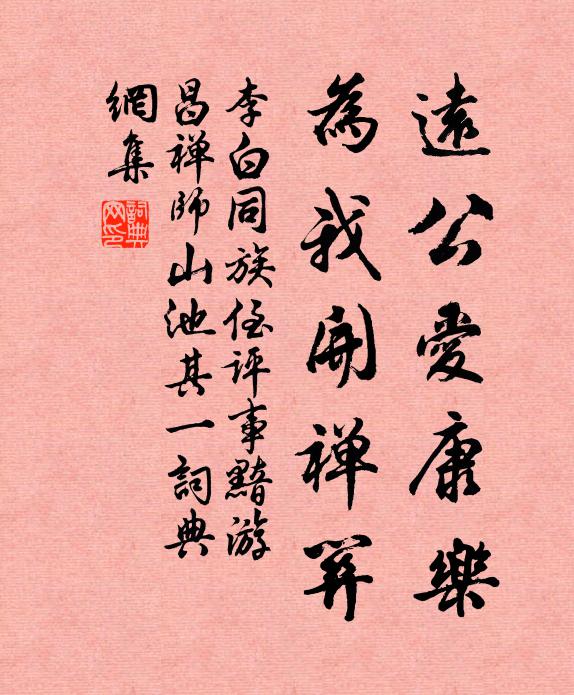 遠公愛康樂
為我開禪關
李白同族侄評事黯游
昌禪師山池其一詞典
網集
詞典
网印